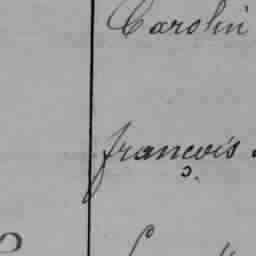 Carolin
françois